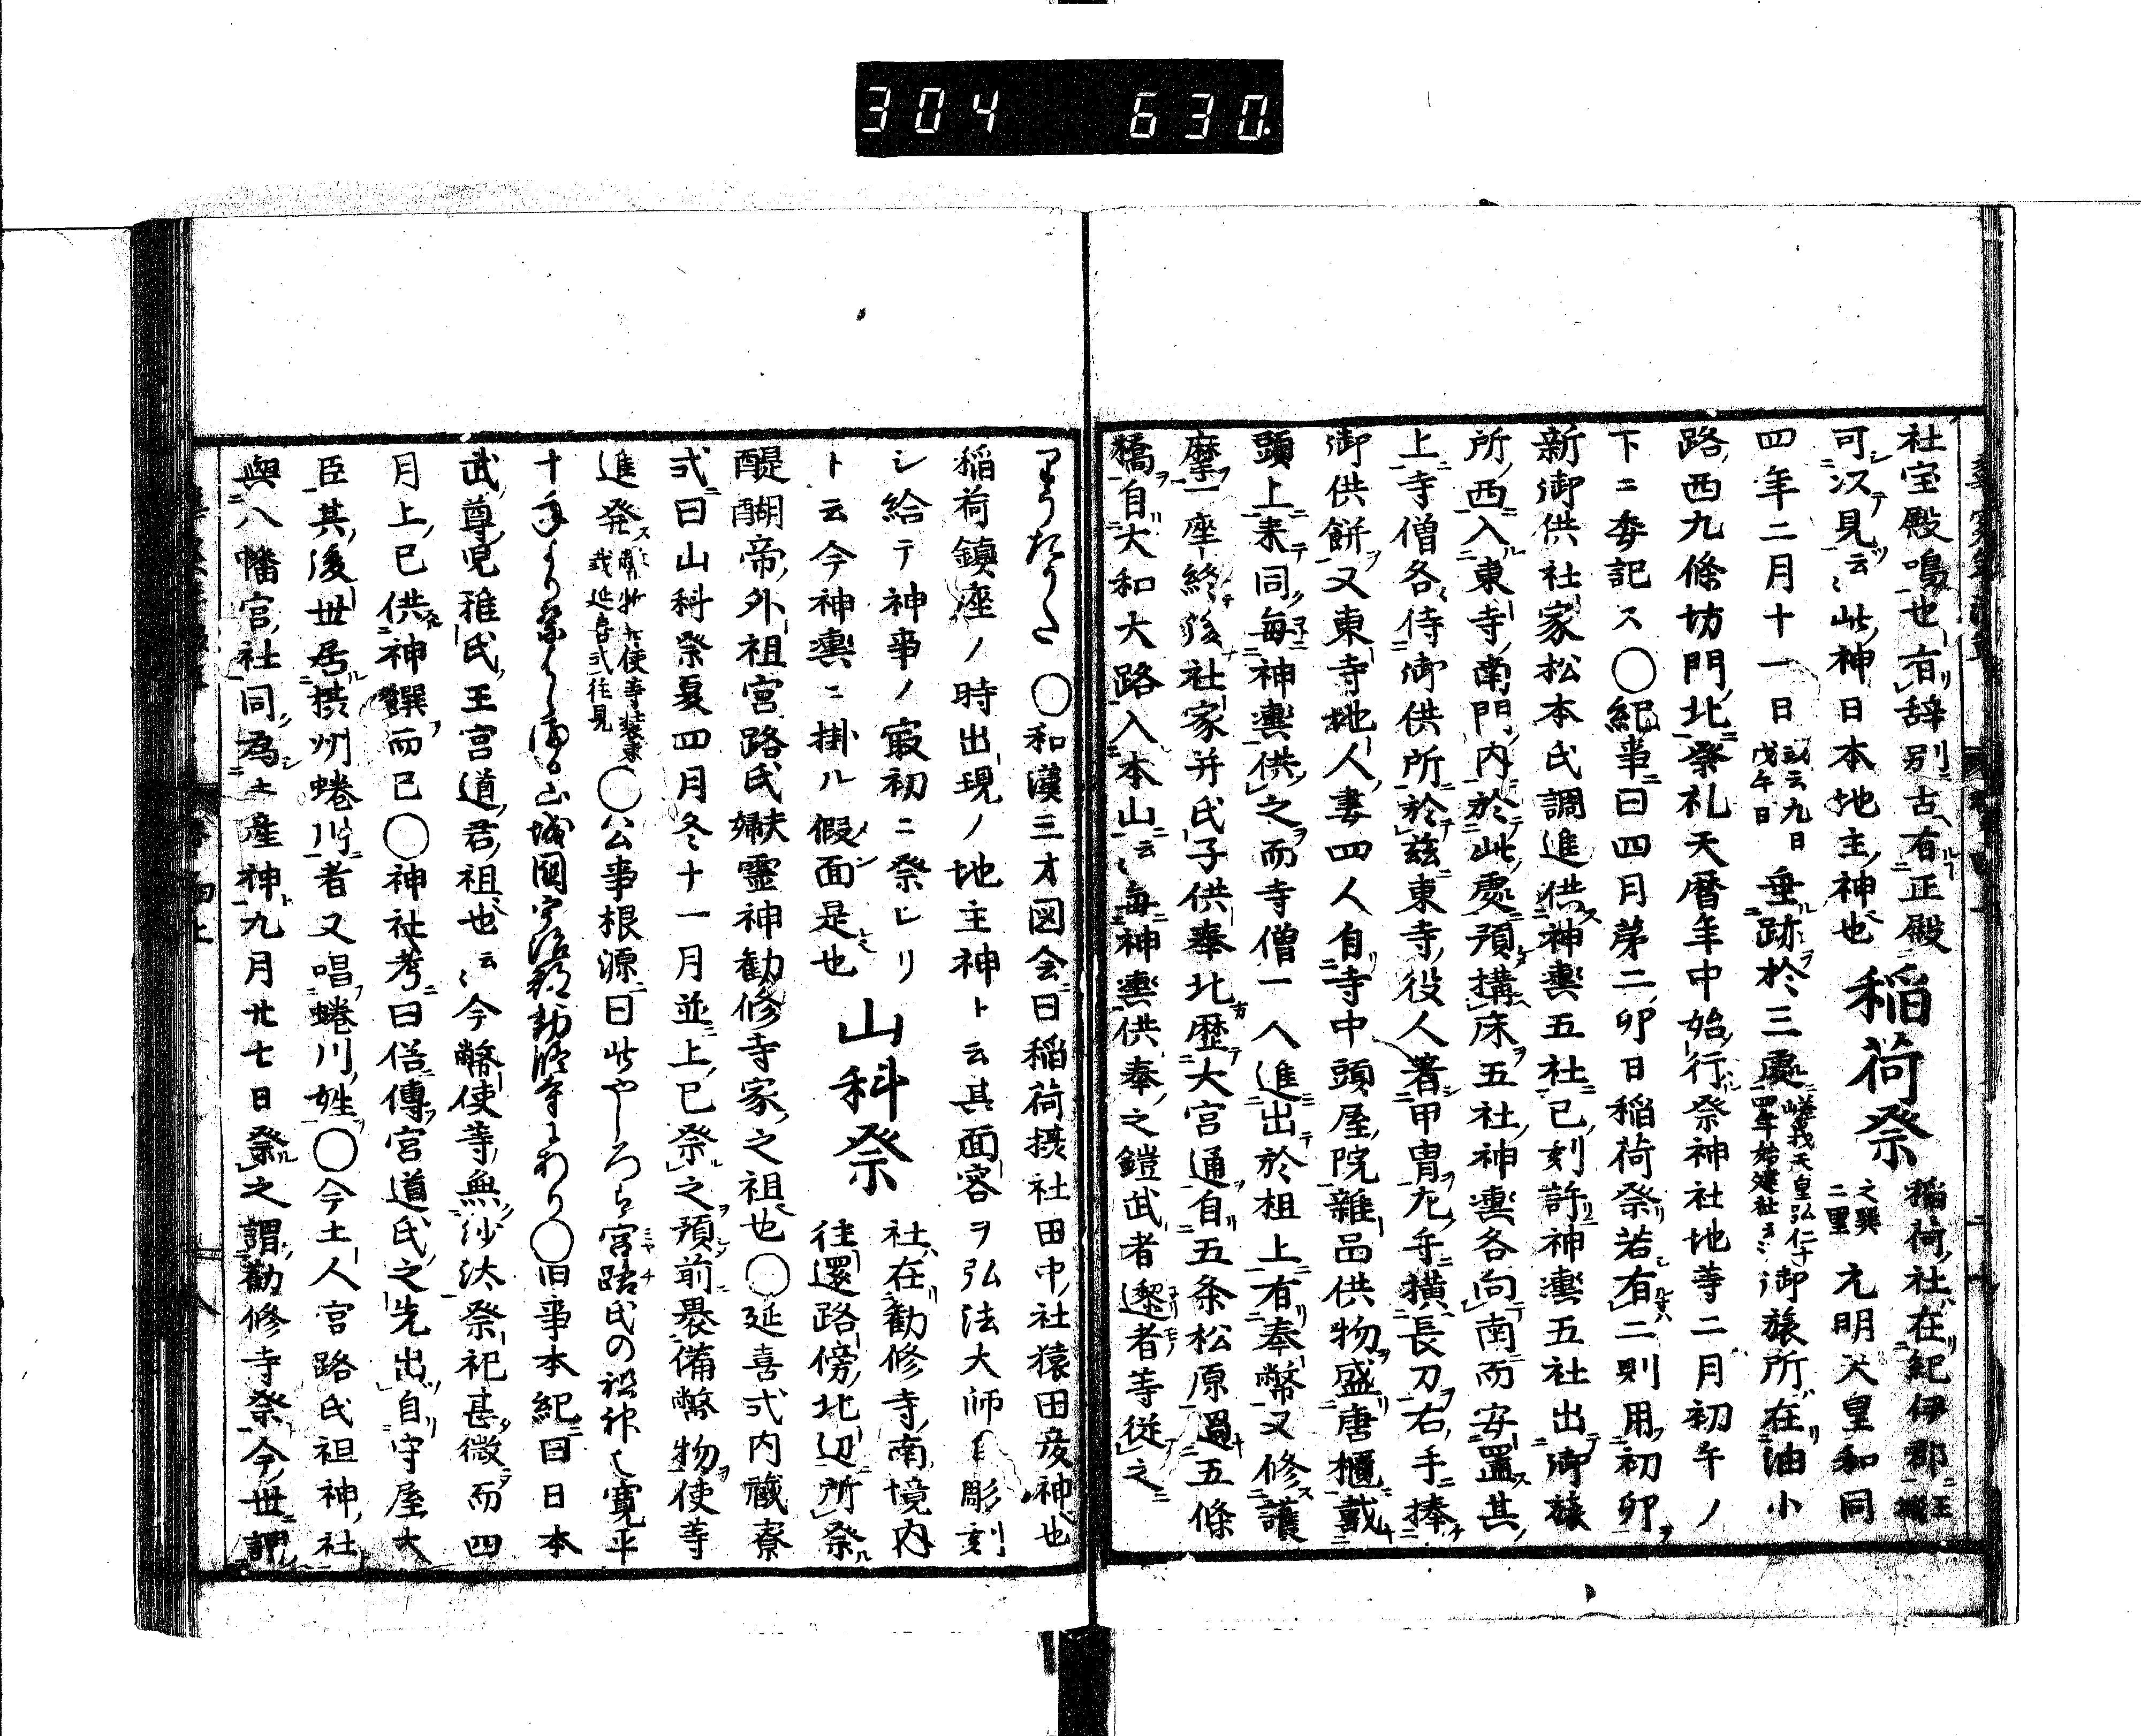 304 630
社宝殿鳴也有辞別古有正殿 稲荷祭 稲荷社在紀伊郡王城
可次見云〻此神日本地主神也 之巽二里 元明天皇和同
四年二月十一日或云九日戊午日 垂跡於三處嵯峨天皇弘仁十四年始建社云〻 御旅所在油小
路西九條坊門北祭礼天暦年中始行祭神社地等二月初午ノ
下ニ委記ス○紀事曰四月第二卯日稲荷祭若有二則用初卯
新御供社家松本氏調進供神輿五社已刻許神輿五社出御旅
所西入東寺南門内於此處預搆床五社神輿各向南而安置其
上寺僧各侍御供所於兹東寺役人著甲冑左手横長刀右手捧
御供餅又東寺地人妻四人自寺中頭屋院雜品供物盛唐櫃戴
頭上来同毎神輿供之而寺僧一人進出於祖上有奉幣又修護
摩一座終後社家并氏子供奉北歴大宮通自五条松原過五條
橋自大和大路入本山云〻毎神輿供奉之鎧武者邌者等従之
○和漢三才図会曰稲荷摂社田中社猿田彦神也
稲荷鎮座ノ時出現ノ地主神ト云其面容ヲ弘法大師自彫刻
シ給テ神事ノ寂初ニ祭レリ 山科祭 社在勧修寺南境内
ト云今神輿ニ掛ル假面是也 往還路傍北辺所祭
醍醐帝外祖宮路氏夫婦靈神勧修寺家之祖也○延喜式内藏寮
式曰山科祭夏四月冬十一月並上巳祭之預前畏備幣物使等
進発幣物左使等装束載延喜式往見 ○公事根源曰此やしろは宮道氏の祖神也寛平
十年より祭らる山城國宇治郡勧修寺にあり○旧事本紀曰日本
武尊児稚氏王宮道君祖也云〻今幣使等無沙汰祭祀甚微而四
月上巳供神饌而已○神社考曰俗傳宮道氏之先出自守屋大
臣其後世居摂州蜷川者又唱蜷川姓○今土人宮路氏祖神社
與八幡宮社同為土産神九月廿七日祭之謂勧修寺祭今世謂